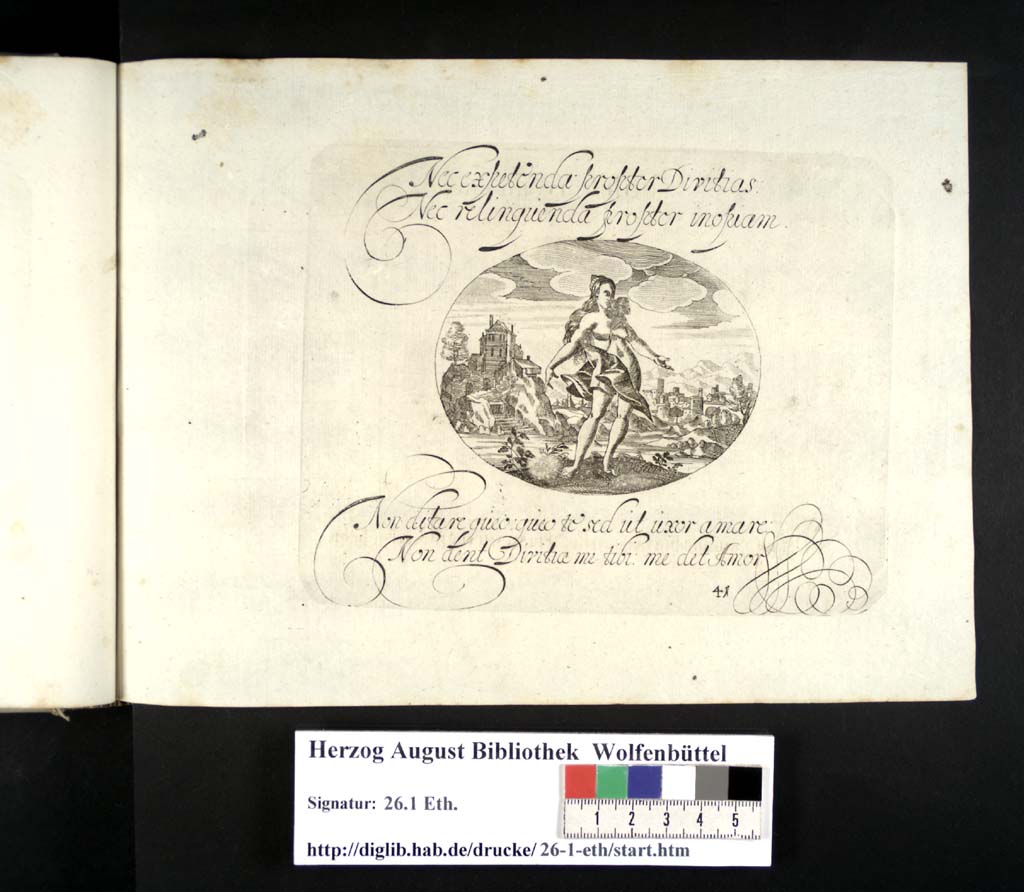 Nec expetenda propter Divitias:
Nec relinquenda propter inopiam.
Non ditare queo: queo te sed ut uxor amare:
Non dent Divitiæ me tibi: me det Amor
41
Herzog August Bibliothek Wolfenbüttel
Signatur: 26.1 Eth.
1 2 3 4 5
http://diglib.hab.de/drucke/ 26-1-eth/start.htm